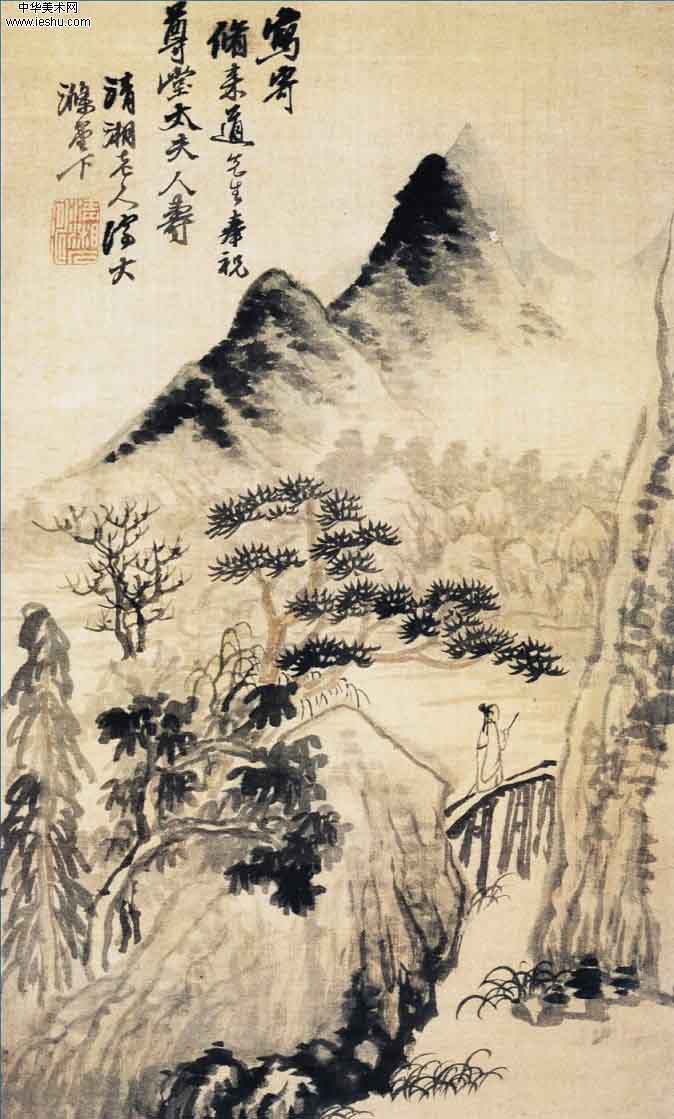 中华美术网
www.ieshu.com
寫寄
脩来道先生奉祝
尊堂太夫人壽
清湘老人濟大
滌堂下